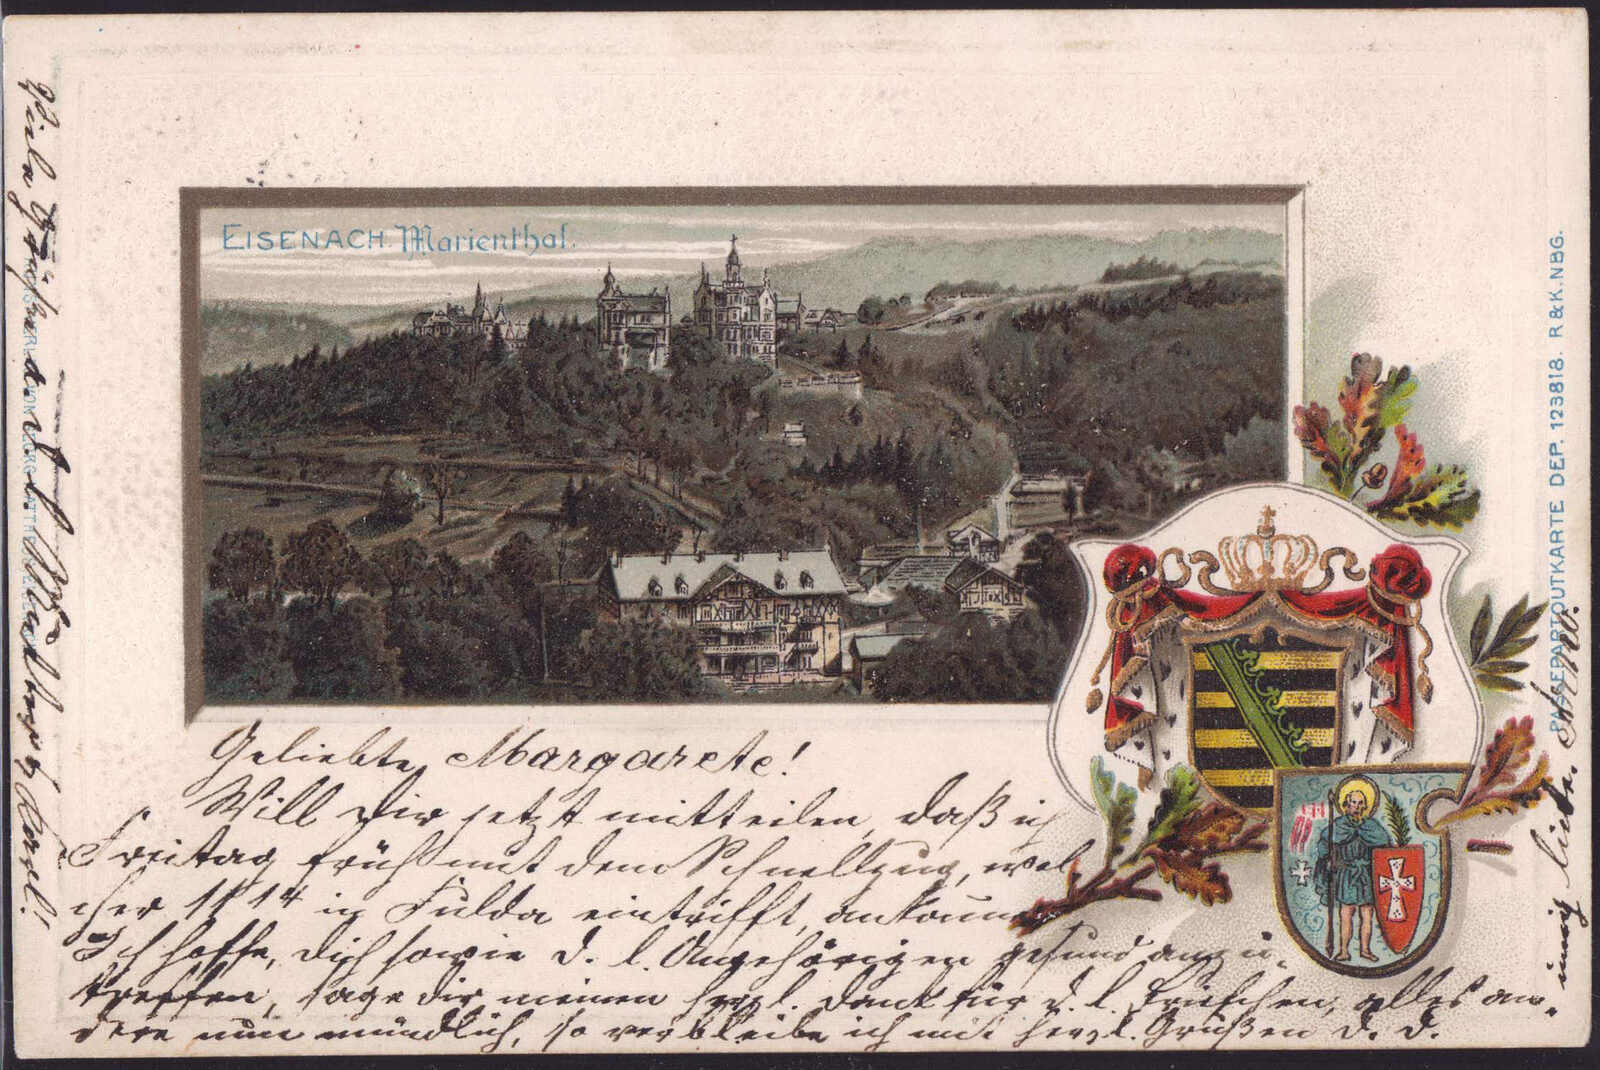 EISENACH. Marienthal.
PASSEPARTOUTKARTE DEP. 123818. R & K. NBG.
Geliebte Margarete!
Will Dir jetzt mitteilen, daß ich
Freitag früh mit dem Schnellzug, wel
cher 11 14 in Fulda eintrifft, ankomme
Ich hoffe, dich sowie d. l. Angehörigen gesund anzu
treffen, sage dir meinen herzl. Dank für d. l. Briefchen, alles an-
dere nun mündlich, so verbleibe ich mit herzl. Grüßen d. d.
innig liebe.
Viele Grüße a. d.